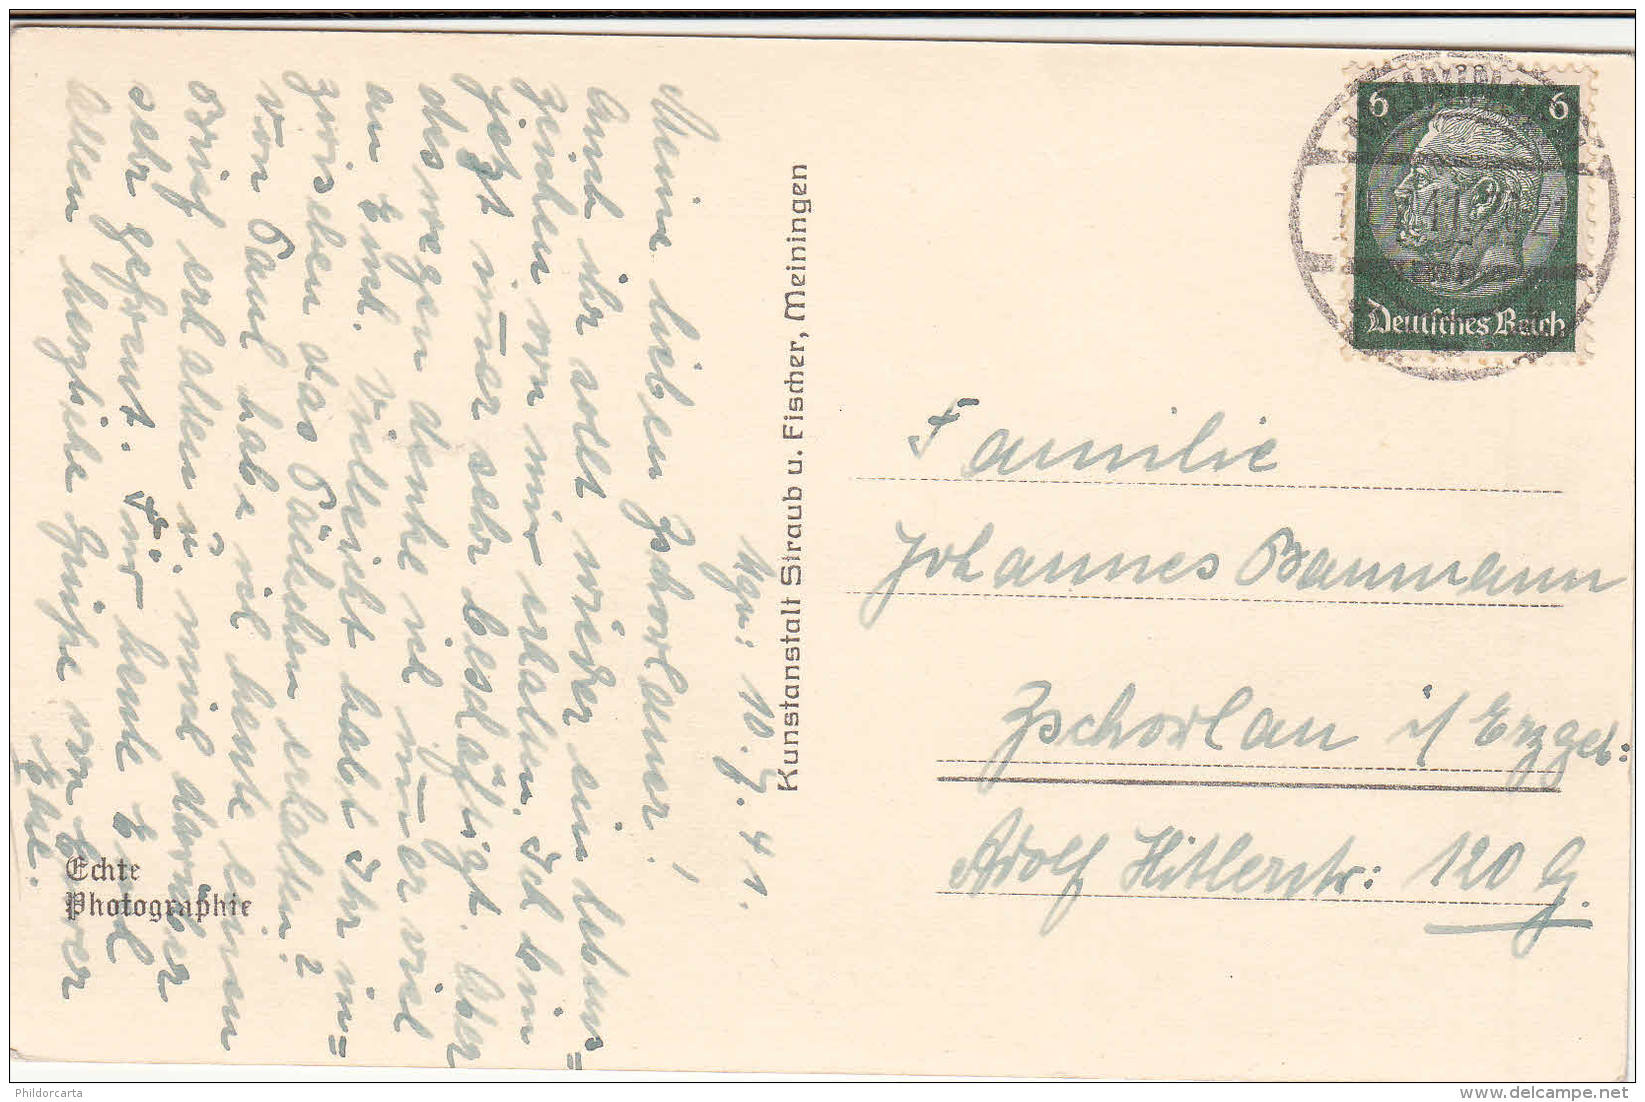 Mgn: 10. 7. 41.
Meine lieben Zschorlauer!
Auch ihr sollt wieder ein lebens=
zeichen von mir erhalten. Ich bin
jetzt im̅er sehr beschäftigt. Aber
deswegen denke ich im̅er viel
an Euch. Vielleicht habt Ihr in=
zwischen das Päckchen erhalten?
von Paul habe ich heute einen
Brief erhalten u. mich darüber
sehr gefreut. Für heute Euch
allen herzliche Grüße von Eurer
Else.
Echte
Photographie
Kunstanstalt Straub u. Fischer, Meiningen
6 6
Deutsches Reich
Familie
Johannes Baumann
Zschorlau i/ Erzgeb:
Adolf Hitlerstr: 120 G.
Phildorcarta
delcampe.net